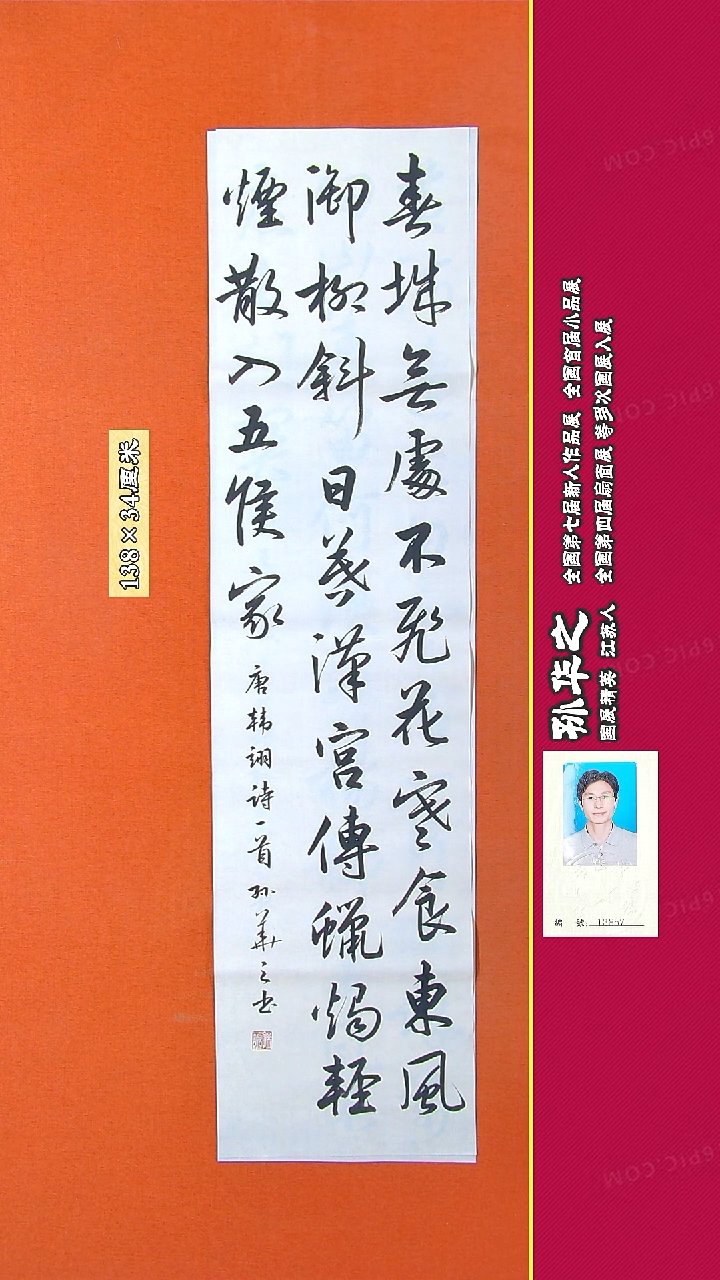 春城無處不飛花寒食東風
御柳斜日暮漢宮傳蠟燭輕
煙散入五侯家
唐韩翃诗一首孙華之书
138×34厘米
孙华之
国展精英 江苏人
全国第七届新人作品展 全国首届小品展
全国第四届扇面展 等多次国展入展
編 號:
6PIC.COM
6PIC.COM
6PIC.COM
6PIC.COM
6PIC.COM